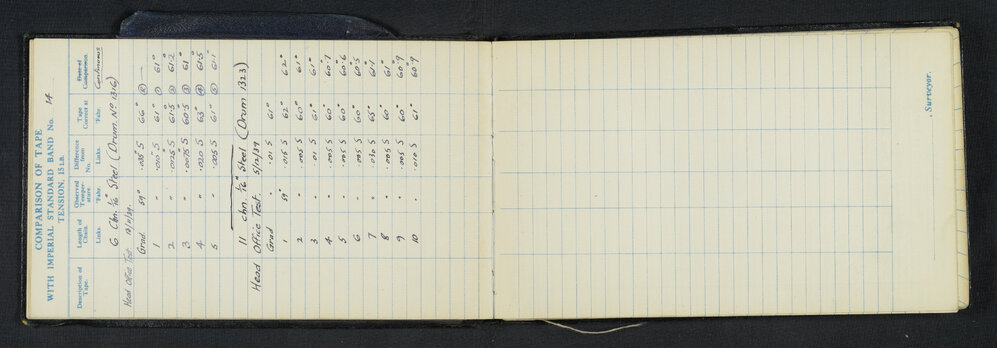 COMPARISON OF TAPE
WITH IMPERIAL STANDARD BAND No. 14
TENSION, 15 LB.
Description of Tape. Length of Chain. Observed Temperature Difference from No. Tape Correct at Date of Comparison.
Links. °Fahr. Links. °Fahr. Continuous
6 Chn. 1/16" Steel (Drum No 1316)
Head Office Test. 12/11/39.
Grad. 59° .035 S 66°
1 " .010 S 61° ① 61°
2 " .0125 S 61.5 ② 61.2
3 " .0075 S 60.5 ③ 61
4 " .020 S 63° ④ 61.5
5 " .005 S 61° ⑤ 61.1
11 chn. 1/16" Steel (Drum 1323)
Head Office Test. 5/12/39
Grad " .01 S 61°
1 59° .015 S 62° 62°
2 " .005 S 60° 61°
3 " .01 S 61° 61°
4 " .005 S 60° 60.7
5 " .005 S 60° 60.6
6 " .005 S 60° 60.5
7 " .030 S 65° 61.1
8 " .005 S 60° 61°
9 " .005 S 60° 60.9
10 " .010 S 61° 60.9
Surveyor.